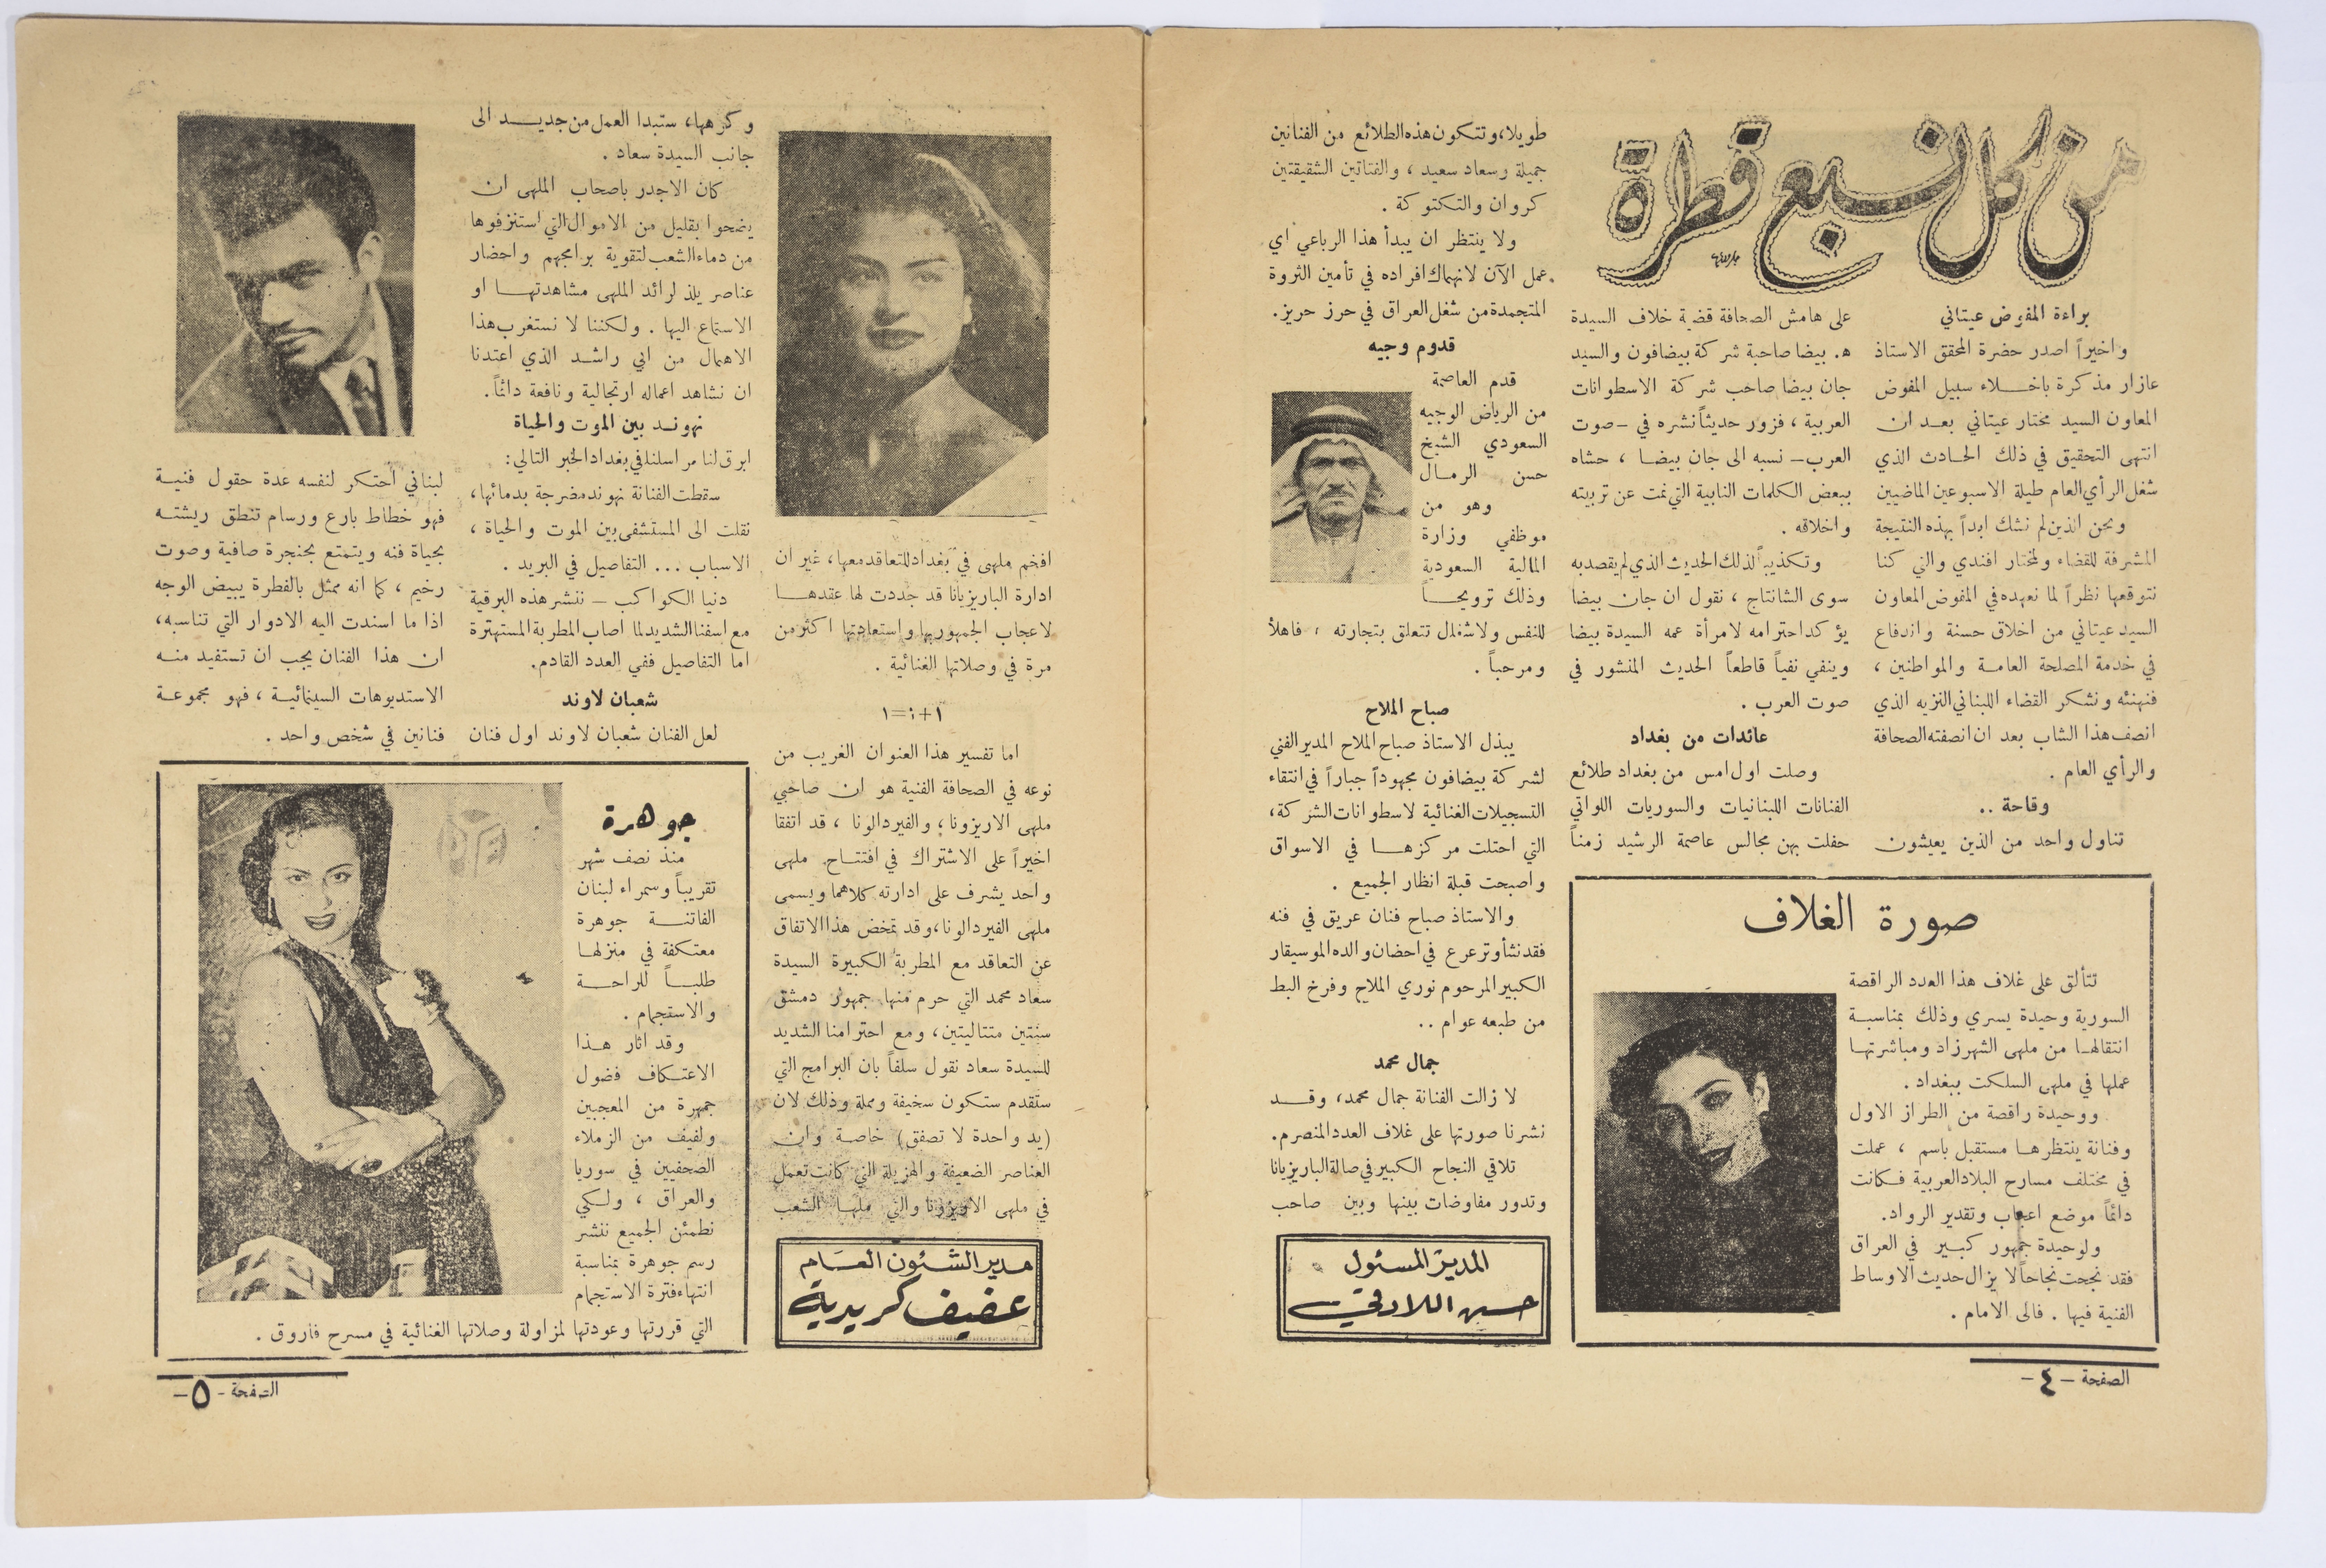 من كل نبع قطرة
براءة المفوض عيتاني
واخيراً اصدر حضرة المحقق الاستاذ
عازار مذكرة باخلاء سبيل المفوض
المعاون السيد مختار عيتاني بعد ان
انتهى التحقيق في ذلك الحادث الذي
شغل الرأي العام طيلة الاسبوعين الماضيين
ونحن الذين لم نشك ابداً بهذه النتيجة
المشرفة للقضاء ولمختار افندي والتي كنا
نتوقعها نظراً لما نعهده في المفوض المعاون
السيد عيتاني من اخلاق حسنة واندفاع
في خدمة المصلحة العامة والمواطنين ،
فنهنئه ونشكر القضاء اللبناني النزيه الذي
انصف هذا الشاب بعد ان انصفته الصحافة
والرأي العام .
وقاحة ..
تناول واحد من الذين يعيشون
على هامش الصحافة قضية خلاف السيدة
ه. بيضا صاحبة شركة بيضافون والسيد
جان بيضا صاحب شركة الاسطوانات
العربية ، فزور حديثاً نشره في – صوت
العرب – نسبه الى جان بيضا ، حشاه
ببعض الكلمات النابية التي نمت عن تربيته
واخلاقه .
وتكذيباً لذلك الحديث الذي لم يقصد به
سوى الشانتاج ، نقول ان جان بيضا
يؤكد احترامه لامرأة عمه السيدة بيضا
وينفي نفياً قاطعاً الحديث المنشور في
صوت العرب .
عائدات من بغداد
وصلت اول امس من بغداد طلائع
الفنانات اللبنانيات والسوريات اللواتي
حفلت بهن مجالس عاصمة الرشيد زمناً
طويلا، وتتكون هذه الطلائع من الفنانين
جميلة وسعاد سعيد ، والفتاتين الشقيقتين
كروان والتكتوكة .
ولا ينتظر ان يبدأ هذا الرباعي اي
عمل الآن لانهماك افراده في تأمين الثروة
المتجمدة من شغل العراق في حرز حريز.
قدوم وجيه
قدم العاصمة
من الرياض الوجيه
السعودي الشيخ
حسن الرمال
وهو من
موظفي وزارة
المالية السعودية
وذلك ترويحاً
للنفس ولاشغال تتعلق بتجارته ، فاهلاً
ومرحباً .
صباح الملاح
يبذل الاستاذ صباح الملاح المدير الفني
لشركة بيضافون مجهوداً جباراً في انتقاء
التسجيلات الغنائية لاسطوانات الشركة،
التي احتلت مركزها في الاسواق
واصبحت قبلة انظار الجميع .
والاستاذ صباح فنان عريق في فنه
فقد نشأ وترعرع في احضان والده الموسيقار
الكبير المرحوم نوري الملاح وفرخ البط
من طبعه عوام ..
جمال محمد
لا زالت الفنانة جمال محمد، وقد
نشرنا صورتها على غلاف العدد المنصرم.
تلاقي النجاح الكبير في صالة الباريزيانا
وتدور مفاوضات بينها وبين صاحب
المدير المسئول
حسين اللادقي
صورة الغلاف
تتألق على غلاف هذا العدد الراقصة
السورية وحيدة يسري وذلك بمناسبة
انتقالها من ملهى الشهرزاد ومباشرتها
عملها في ملهى السلكت ببغداد .
ووحيدة راقصة من الطراز الاول
وفنانة ينتظرها مستقبل باسم ، عملت
في مختلف مسارح البلاد العربية فكانت
دائماً موضع اعجاب وتقدير الرواد.
ولوحيدة جمهور كبير في العراق
فقد نجحت نجاحاً لا يزال حديث الاوساط
الفنية فيها . فالى الامام .
الصفحة – ٤ –
افخم ملهى في بغداد للتعاقد معها، غير ان
ادارة الباريزيانا قد جددت لها عقدها
لاعجاب الجمهور بها واستعادتها اكثر من
مرة في وصلاتها الغنائية .
١+١=١
اما تفسير هذا العنوان الغريب من
نوعه في الصحافة الفنية هو ان صاحبي
ملهى الاريزونا ، والفيردالونا ، قد اتفقا
اخيراً على الاشتراك في افتتاح ملهى
واحد يشرف على ادارته كلاهما ويسمى
ملهى الفيردالونا، وقد تمخض هذا الاتفاق
عن التعاقد مع المطربة الكبيرة السيدة
سعاد محمد التي حرم منها جمهور دمشق
سنتين متتاليتين، ومع احترامنا الشديد
للسيدة سعاد نقول سلفاً بان البرامج التي
ستقدم ستكون سخيفة ومملة وذلك لان
(يد واحدة لا تصفق) خاصة وان
العناصر الضعيفة والهزيلة التي كانت تعمل
في ملهى الاريزونا والتي ملها الشعب
مدير الشئون العام
عفيف كريدية
وكرهها، ستبدا العمل من جديد الى
جانب السيدة سعاد .
كان الاجدر باصحاب الملهى ان
يضحوا بقليل من الاموال التي استنزفوها
من دماء الشعب لتقوية برامجهم واحضار
عناصر يلذ لرائد الملهى مشاهدتها او
الاستماع اليها . ولكننا لا نستغرب هذا
الاهمال من ابي راشد الذي اعتدنا
ان نشاهد اعماله ارتجالية ونافعة دائماً.
نهوند بين الموت والحياة
ابرق لنا مراسلنا في بغداد الخبر التالي:
سقطت الفنانة نهوند مضرجة بدمائها،
نقلت الى المستشفى بين الموت والحياة ،
الاسباب ... التفاصيل في البريد .
دنيا الكواكب – ننشر هذه البرقية
مع اسفنا الشديد لما اصاب المطربة المستهترة
اما التفاصيل ففي العدد القادم.
شعبان لاوند
لعل الفنان شعبان لاوند اول فنان
لبناني احتكر لنفسه عدة حقول فنية
فهو خطاط بارع ورسام تنطق ريشته
بحياة فنه ويتمتع بحنجرة صافية وصوت
رخيم ، كما انه ممثل بالفطرة يبيض الوجه
اذا ما اسندت اليه الادوار التي تناسبه،
ان هذا الفنان يجب ان تستفيد منه
الاستديوهات السينمائية ، فهو مجموعة
فنانين في شخص واحد .
جوهرة
منذ نصف شهر
تقريباً وسمراء لبنان
الفاتنة جوهرة
معتكفة في منزلها
طلباً للراحة
والاستجمام .
وقد اثار هذا
الاعتكاف فضول
جمهرة من المعجبين
ولفيف من الزملاء
الصحفيين في سوريا
والعراق ، ولكي
نطمئن الجميع ننشر
رسم جوهرة بمناسبة
انتهاء فترة الاستجمام
التي قررتها وعودتها لمزاولة وصلاتها الغنائية في مسرح فاروق .
الصفحة – ٥ –